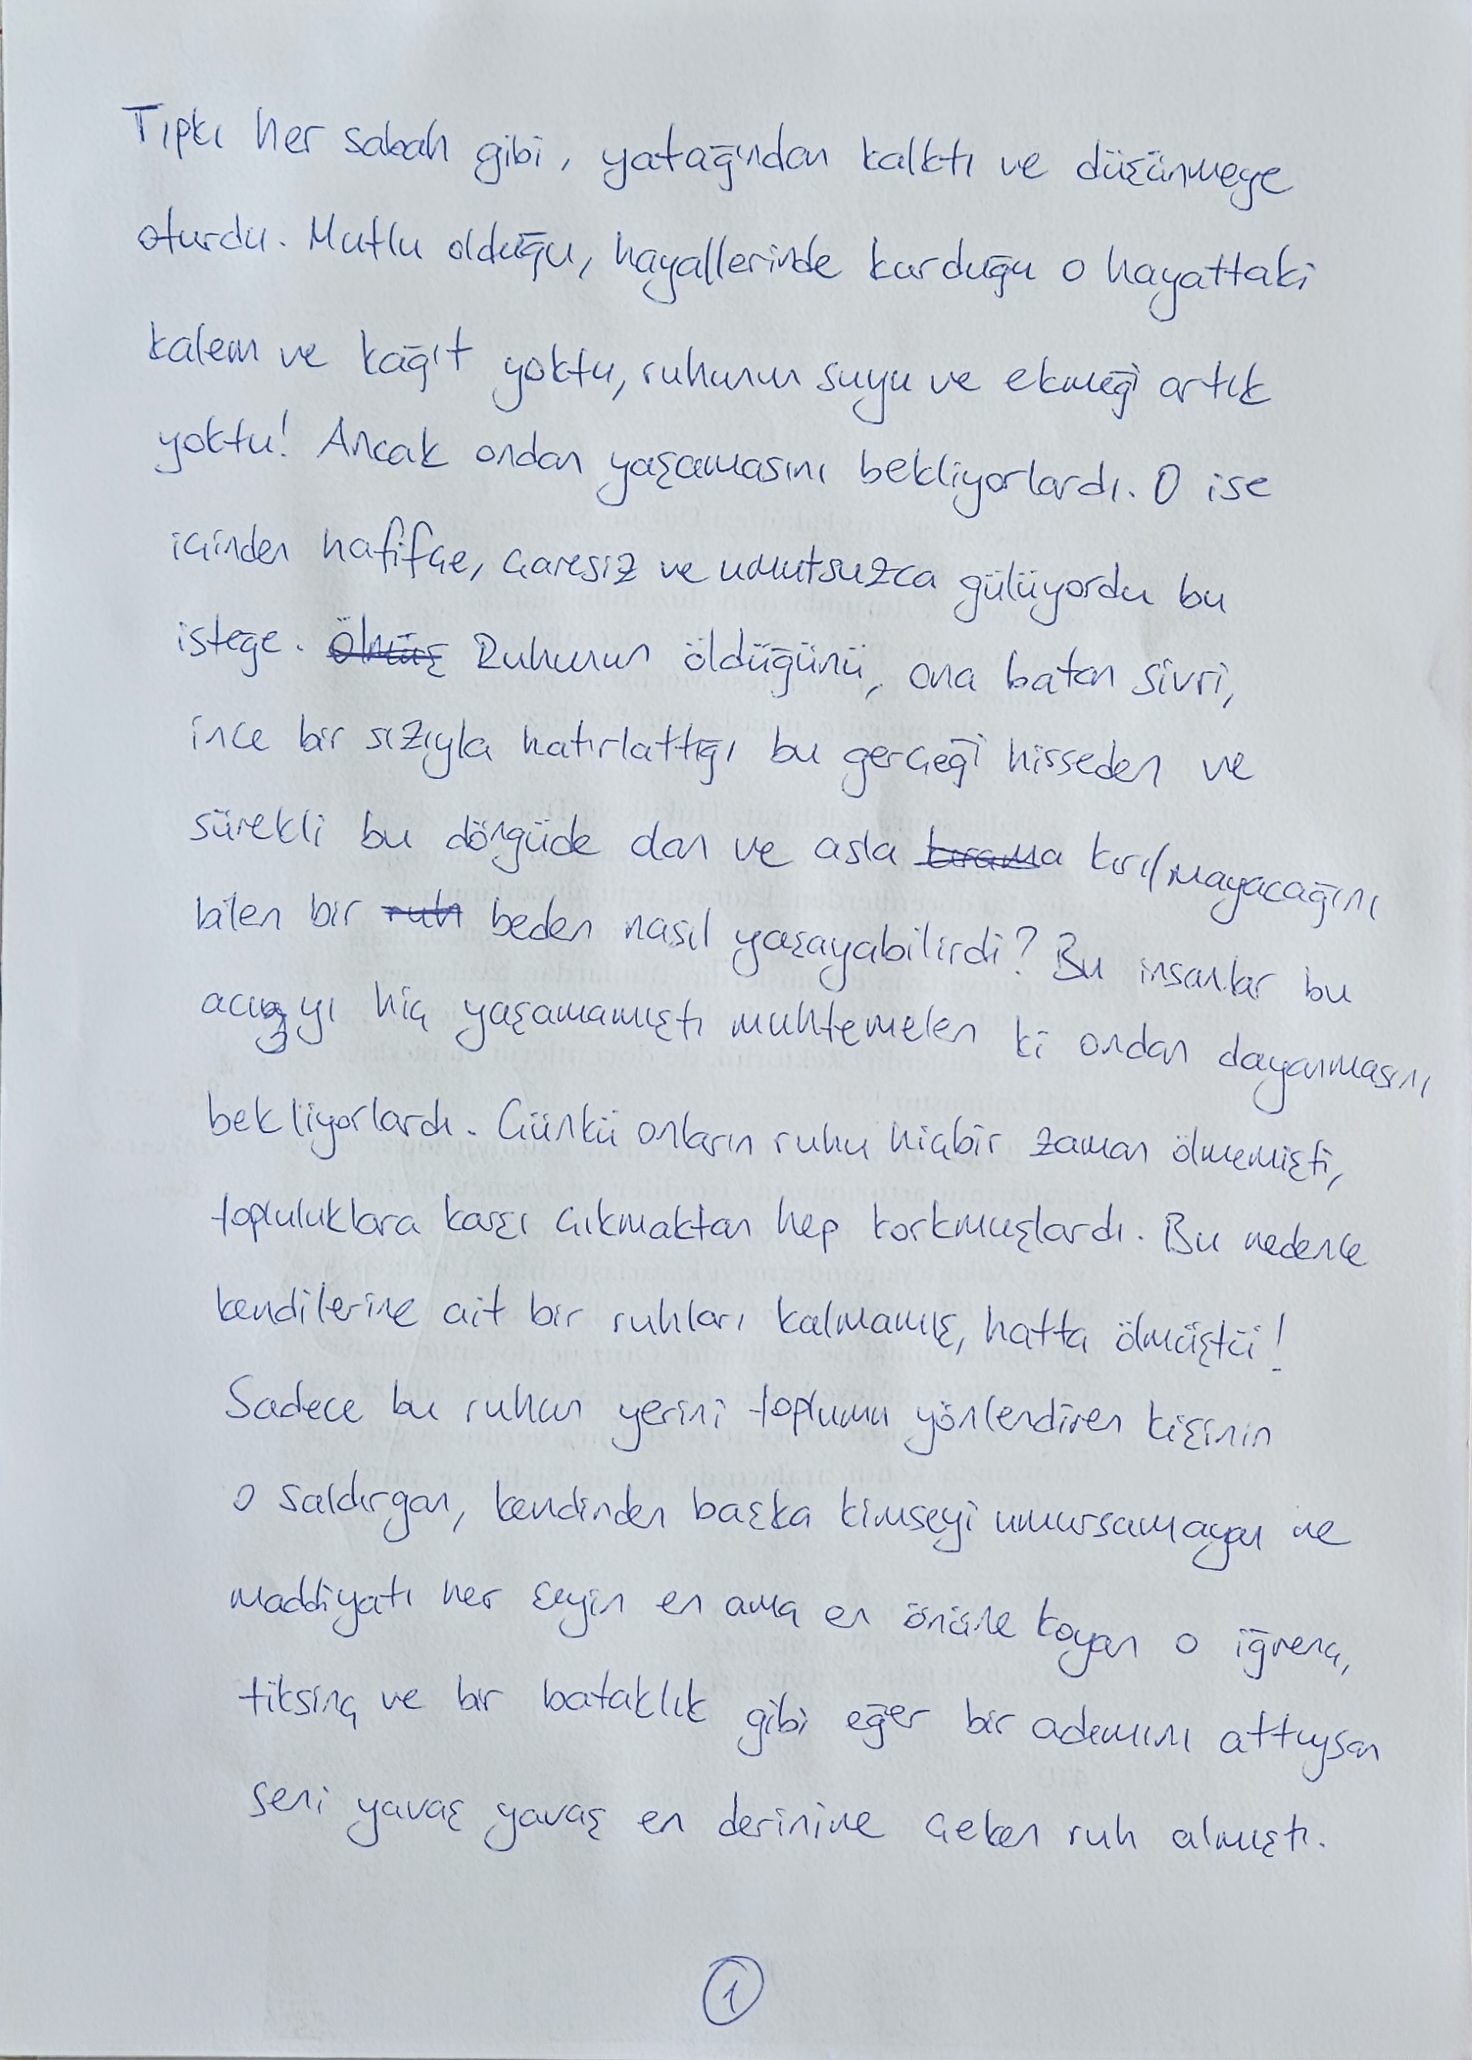 Tıpkı her sabah gibi, yatağından kalktı ve düşünmeye
oturdu. Mutlu olduğu, hayallerinde kurduğu o hayattaki
kalem ve kağıt yoktu, ruhunun suyu ve ekmeği artık
yoktu! Ancak ondan yaşamasını bekliyorlardı. O ise
içinden hafifçe, çaresiz ve umutsuzca gülüyordu bu
isteğe. Ölmüş Ruhunun öldüğünü, ona batan sivri,
ince bir sızıyla hatırlattığı bu gerçeği hisseden ve
sürekli bu döngüde olan ve asla kırılmayacağını
bilen bir ruh beden nasıl yaşayabilirdi? Bu insanlar bu
acıyı hiç yaşamamıştı muhtemelen ki ondan dayanmasını
bekliyorlardı. Çünkü onların ruhu hiçbir zaman ölmemişti,
topluluklara karşı çıkmaktan hep korkmuşlardı. Bu nedenle
kendilerine ait bir ruhları kalmamış, hatta ölmüştü!
Sadece bu ruhun yerini toplumu yönlendiren kişinin
o saldırgan, kendinden başka kimseyi umursamayan ve
maddiyatı her şeyin en ama en önüne koyan o iğrenç,
tiksinç ve bir bataklık gibi eğer bir adımını attıysan
seni yavaş yavaş en derinine çeken ruh almıştı.
1